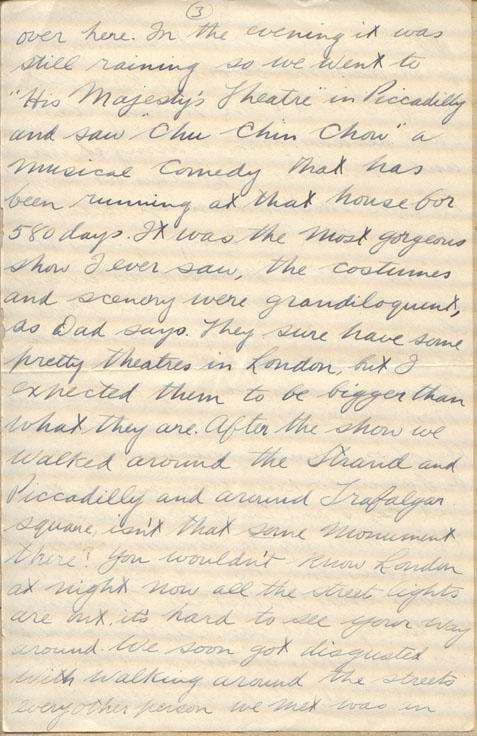 3
over here. In the evening it was
still raining so we went to
"His Majesty's Theatre" in Piccadilly
and saw "Chu Chin Chow" a
musical comedy that has
been running at that house for
580 days. It was the most gorgeous
show I ever saw, the costumes
and scenery were grandiloquent,
as Dad says. They sure have some
pretty theatres in London, but I
expected them to be bigger than
what they are. After the show we
walked around the Strand and
Piccadilly and around Trafalgar
square, isn't that some monument
there? You wouldn't know London
at night now all the street lights
are out, it's hard to see your way
around. We soon got disgusted
with walking around the streets
every other person we met was in